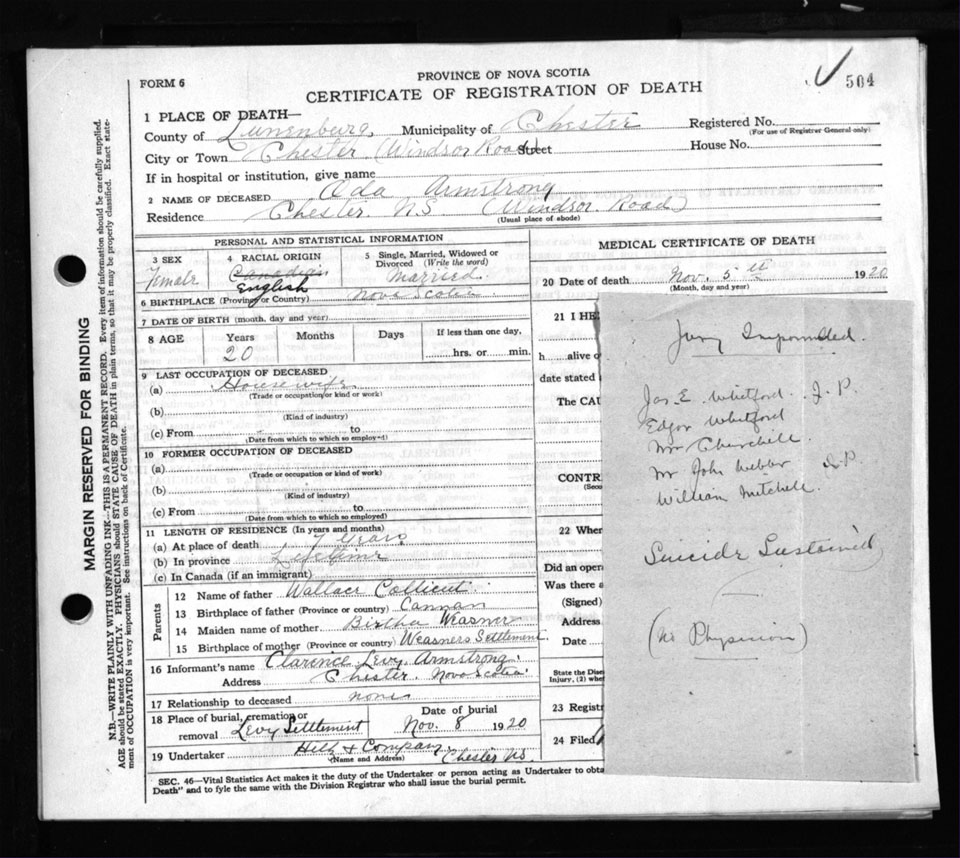 FORM 6
PROVINCE OF NOVA SCOTIA
CERTIFICATE OF REGISTRATION OF DEATH
504
1 PLACE OF DEATH—
County of Lunenburg, Municipality of Chester
Registered No.
(For use of Registrar General only)
City or Town Chester (Windsor Road) Street
House No.
If in hospital or institution, give name
2 NAME OF DECEASED Ada Armstrong
Residence Chester N.S. (Windsor Road)
(Usual place of abode)
PERSONAL AND STATISTICAL INFORMATION
3 SEX
Female
4 RACIAL ORIGIN
Canadian
English
5 Single, Married, Widowed or Divorced (Write the word)
Married
6 BIRTHPLACE (Province or Country) Nova Scotia
7 DATE OF BIRTH (month, day and year)
8 AGE
Years
20
Months
Days
If less than one day,
hrs. or min.
9 LAST OCCUPATION OF DECEASED
(a) Housewife
(Trade or occupation or kind or work)
(b)
(Kind of industry)
(c) From to
(Date from which to which so employed)
10 FORMER OCCUPATION OF DECEASED
(a)
(Trade or occupation or kind of work)
(b)
(Kind of industry)
(c) From to
(Date from which to which so employed)
11 LENGTH OF RESIDENCE (In years and months)
(a) At place of death 7 Years
(b) In province Lifetime
(c) In Canada (if an immigrant)
Parents
12 Name of father Wallace Collicut
13 Birthplace of father (Province or country) Cannan
14 Maiden name of mother Birtha Weasner
15 Birthplace of mother (Province or country) Weasners Settlement
16 Informant's name Clarence Levy Armstrong
Address Chester Nova Scotia
17 Relationship to deceased none
18 Place of burial, cremation or removal Levy Settlement
Date of burial
Nov. 8 1920
19 Undertaker Hilz & Company Chester NS.
(Name and Address)
SEC. 46—Vital Statistics Act makes it the duty of the Undertaker or person acting as Undertaker to obta
Death" and to fyle the same with the Division Registrar who shall issue the burial permit.
MEDICAL CERTIFICATE OF DEATH
20 Date of death Nov. 5th 1920
(Month, day and year)
21 I HE
h alive o
date stated
The CAU
CONTR
(Seco
22 When
Did an opera
Was there a
(Signed)
Address
Date
State the Dise
Injury, (2) whe
23 Registr
24 Filed
Jury Impounded.
Jas. E. Whitford. J. P.
Edgar Whitford
Mr Churchill.
Mr John Webber J.P.
William Mitchell
Suicide Sustained
(No Physician)
MARGIN RESERVED FOR BINDING
N.B.—WRITE PLAINLY WITH UNFADING INK—THIS IS A PERMANENT RECORD. Every item of information should be carefully supplied.
AGE should be stated EXACTLY. PHYSICIANS should STATE CAUSE OF DEATH in plain terms, so that it may be properly classified. Exact state-
ment of OCCUPATION is very important. See instructions on back of Certificate.